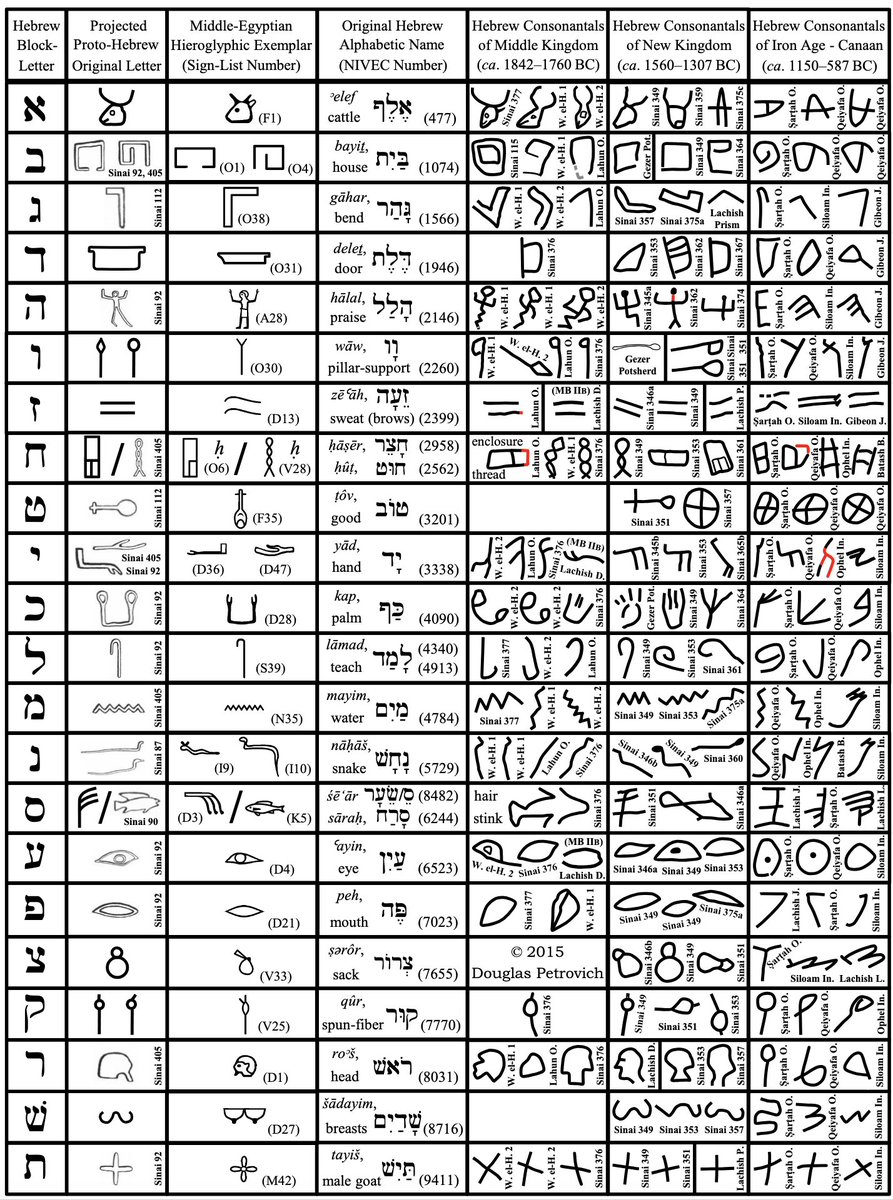 Hebrew Block-Letter
Projected Proto-Hebrew Original Letter
Middle-Egyptian Hieroglyphic Exemplar (Sign-List Number)
Original Hebrew Alphabetic Name (NIVEC Number)
Hebrew Consonantals of Middle Kingdom (ca. 1842–1760 BC)
Hebrew Consonantals of New Kingdom (ca. 1560–1307 BC)
Hebrew Consonantals of Iron Age - Canaan (ca. 1150–587 BC)
א (F1) ʾelef cattle אֶלֶף (477) Sinai 377 W. el-H. 1 W. el-H. 2 Sinai 349 Sinai 359 Sinai 375c Ṣarṭah O. Qeiyafa O. Qeiyafa O.
ב Sinai 92, 405 (O1) (O4) bayiṯ, house בַּיִת (1074) Sinai 115 W. el-H. 1 Lahun O. Gezer Pot. Sinai 349 Sinai 364 Ṣarṭah O. Qeiyafa O. Qeiyafa O.
ג Sinai 112 (O38) gāhar, bend גָּהַר (1566) W. el-H. 1 W. el-H. 2 Lahun O. Sinai 357 Sinai 375a Lachish Prism Ṣarṭah O. Siloam In. Gibeon J.
ד (O31) deleṯ, door דֶּלֶת (1946) Sinai 376 Sinai 353 Sinai 362 Sinai 367 Ṣarṭah O. Qeiyafa O. Gibeon J.
ה Sinai 92 (A28) hālal, praise הָלַל (2146) W. el-H. 1 W. el-H. 1 W. el-H. 2 Sinai 345a Sinai 362 Sinai 374 Ṣarṭah O. Siloam In. Gibeon J.
ו (O30) wāw, pillar-support וָו (2260) W. el-H. 1 W. el-H. 2 Lahun O. Sinai 376 Gezer Potsherd Sinai 351 Sinai 351 Ṣarṭah O. Qeiyafa O. Siloam In. Gibeon J.
ז (D13) zēʿāh, sweat (brows) זֵעָה (2399) Lahun O. (MB IIB) Lachish D. Sinai 346a Sinai 349 Lachish P. Ṣarṭah O. Siloam In. Gibeon J.
ח / Sinai 405 (O6) ḥ / (V28) ḥ ḥāṣēr, חָצֵר (2958) ḥûṭ, חוּט (2562) enclosure thread Lahun O. W. el-H. 1 Sinai 376 Sinai 349 Sinai 353 Sinai 361 Ṣarṭah O. Qeiyafa O. Ophel In. Batash B.
ט Sinai 112 (F35) ṭôv, good טוֹב (3201) Sinai 351 Sinai 357 Ṣarṭah O. Qeiyafa O. Qeiyafa O.
י Sinai 405 Sinai 92 (D36) (D47) yād, hand יָד (3338) W. el-H. 2 Lahun O. Sinai 376 (MB IIB) Lachish D. Sinai 345b Sinai 353 Sinai 365b Ṣarṭah O. Qeiyafa O. Ophel In. Siloam In.
כ Sinai 92 (D28) kap, palm כַּף (4090) W. el-H. 2 W. el-H. 2 Sinai 376 Gezer Pot. Sinai 349 Sinai 364 Ṣarṭah O. Qeiyafa O. Siloam In.
ל Sinai 92 (S39) lāmad, teach לָמַד (4340) (4913) Sinai 377 W. el-H. 2 Lahun O. Sinai 349 Sinai 353 Sinai 361 Ṣarṭah O. Qeiyafa O. Ophel In.
מ Sinai 405 (N35) mayim, water מַיִם (4784) Sinai 377 W. el-H. 1 W. el-H. 2 Sinai 349 Sinai 353 Sinai 375a Qeiyafa O. Ophel In. Siloam In.
נ Sinai 87 (I9) (I10) nāḥāš, snake נָחָשׁ (5729) W. el-H. 1 W. el-H. 1 Lahun O. Sinai 376 Sinai 346b Sinai 349 Sinai 360 Qeiyafa O. Ophel In. Batash B. Siloam In.
ס / Sinai 90 (D3) / (K5) śēʿār סֵ/שֵׂעָר (8482) sāraḥ, סָרַח (6244) hair stink Sinai 376 Sinai 351 Sinai 346a Lachish J. Ṣarṭah O. Lachish L.
ע Sinai 92 (D4) ʿayin, eye עַיִן (6523) W. el-H. 2 Sinai 376 (MB IIB) Lachish D. Sinai 346a Sinai 349 Sinai 353 Ṣarṭah O. Qeiyafa O. Siloam In.
פ Sinai 92 (D21) peh, mouth פֶּה (7023) Sinai 377 W. el-H. 1 Sinai 349 Sinai 349 Sinai 375a Lachish J. Ṣarṭah O. Siloam In.
צ (V33) ṣərôr, sack צְרוֹר (7655) © 2015 Douglas Petrovich Sinai 346b Sinai 349 Sinai 351 Ṣarṭah O. Siloam In. Lachish L.
ק (V25) qûr, spun-fiber קוּר (7770) Sinai 376 Sinai 349 Sinai 351 Sinai 353 Ṣarṭah O. Qeiyafa O. Ophel In.
ר Sinai 405 (D1) roʾš, head רֹאשׁ (8031) W. el-H. 1 Lahun O. Sinai 376 Lachish D. Sinai 353 Sinai 357 Ṣarṭah O. Qeiyafa O. Siloam In.
שׁ (D27) šādayim, breasts שָׁדַיִם (8716) Sinai 349 Sinai 353 Sinai 357 Ṣarṭah O. Qeiyafa O. Siloam In.
ת Sinai 92 (M42) tayiš, male goat תַּיִשׁ (9411) W. el-H. 2 W. el-H. 2 Sinai 376 Sinai 349 Sinai 351 Lachish P. Ṣarṭah O. Qeiyafa O. Siloam In.